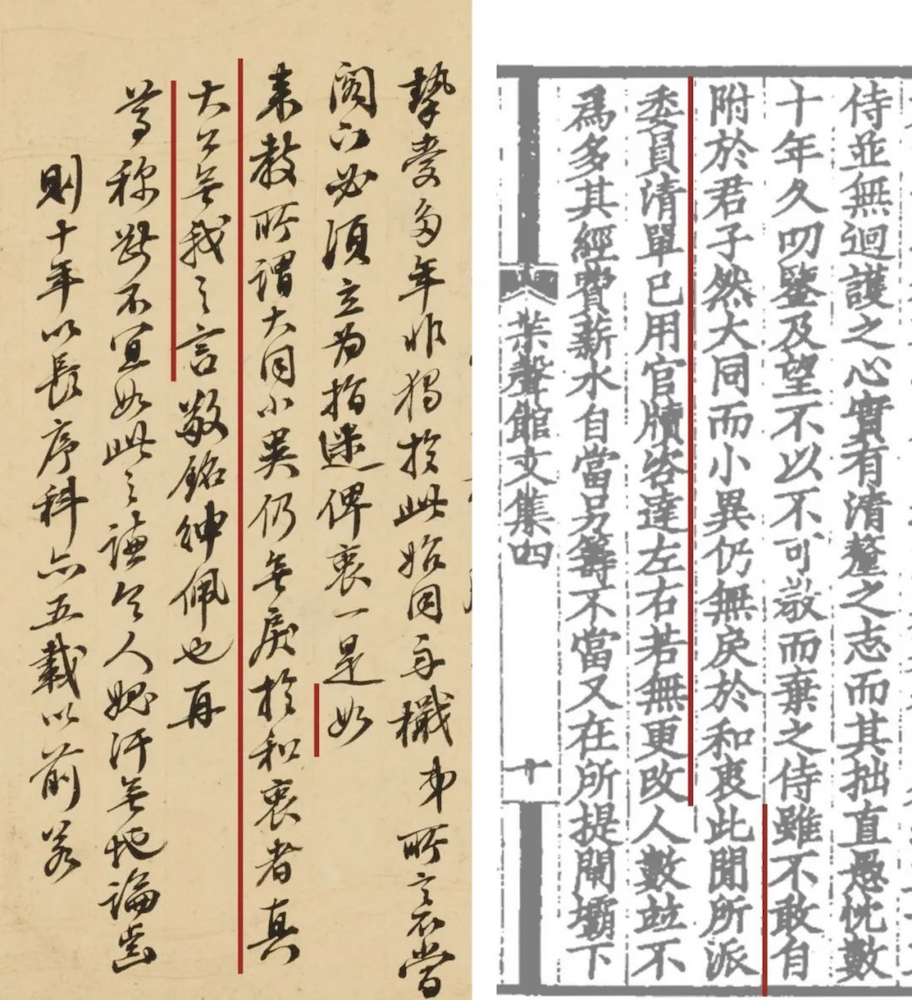 摯愛多年非獨於此始同舟檝弟所言當
閣下必須立為指迷俾衷一是如
來教所謂大同小異仍無戾於和衷者真
大公無我之言敬銘紳佩也再
尊稱斷不宜如此之謙令人媿汗無地論齒
則十年以長序科亦五載以前若
侍並無迴護之心實有清釐之志而其拙直愚忱數
十年久叨鑒及望不以不可敎而棄之侍雖不敢自
附於君子然大同而小異仍無戾於和衷此聞所派
委員清單已用官牘咨達左右若無更改人數並不
爲多其經費薪水自當另籌不當又在所提閘壩下
茮聲館文集四
十